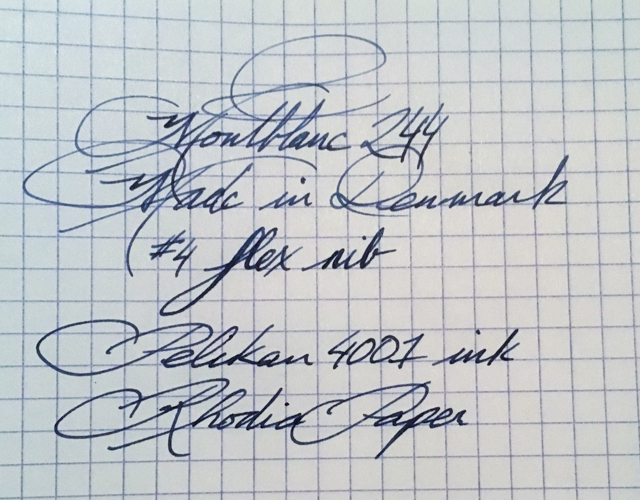 Montblanc 244
Made in Denmark
#4 flex nib
Pelikan 4001 ink
Rhodia Paper